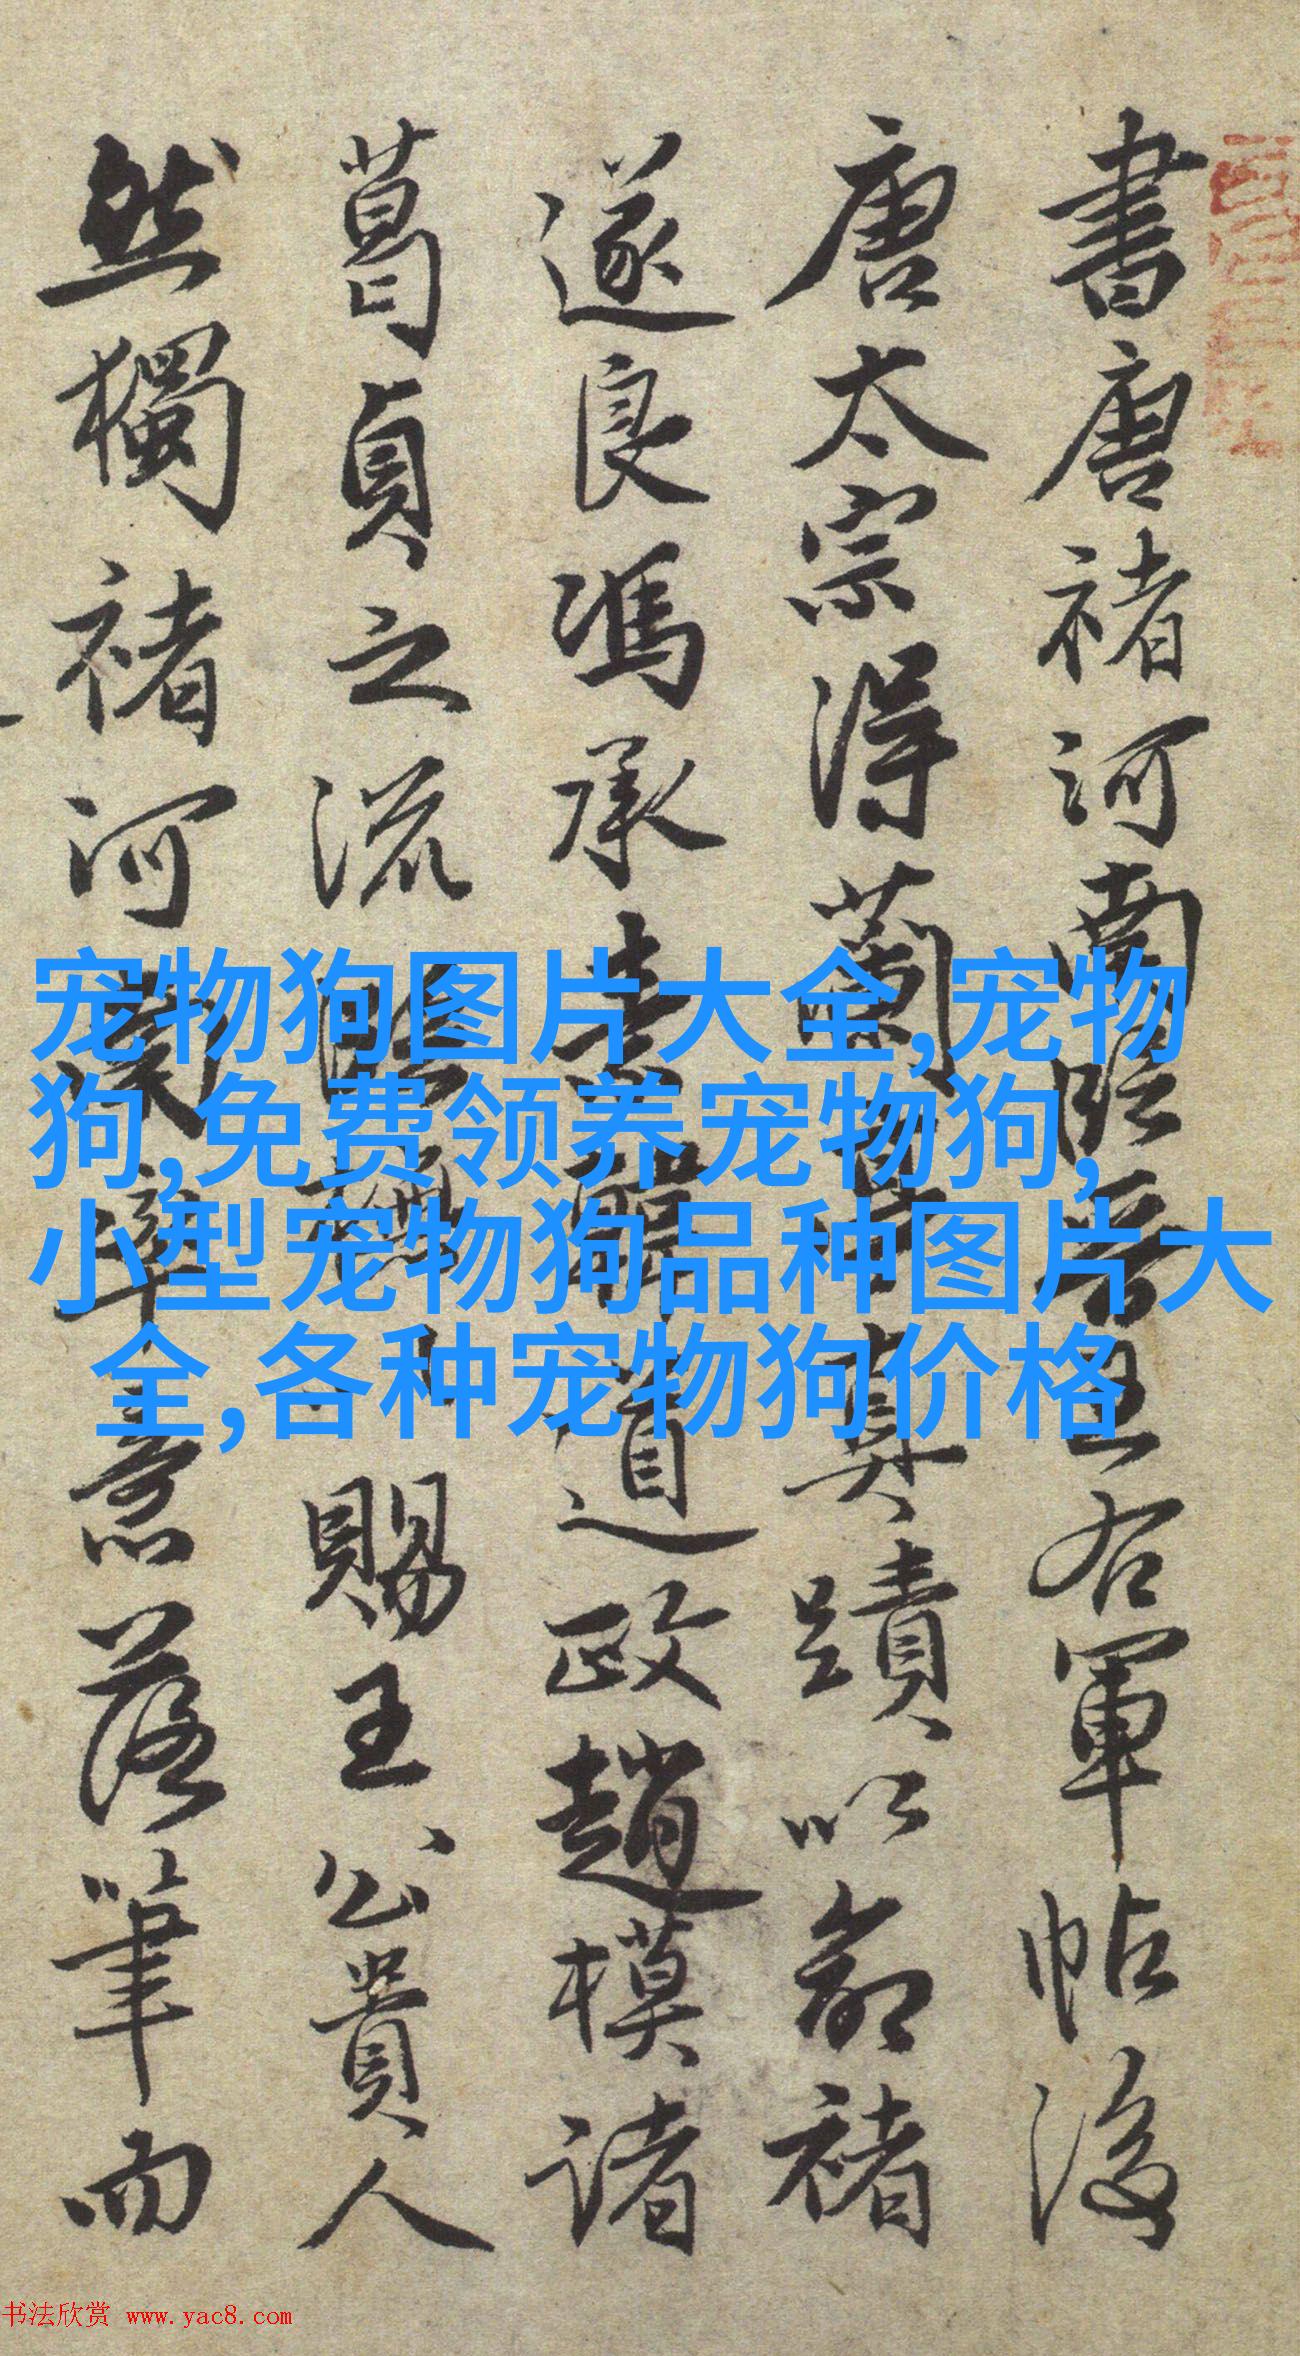 書唐褚河南臨晉王右軍帖後
唐太宗得蘭亭真蹟以命褚
遂良馮承素韓道政趙模諸
葛貞之流臨賜王公貴人
然獨褚河南率意落筆而
宠物狗图片大全,宠物
狗,免费领养宠物狗,
小型宠物狗品种图片大
全,各种宠物狗价格
书法欣赏 www.yac8.com